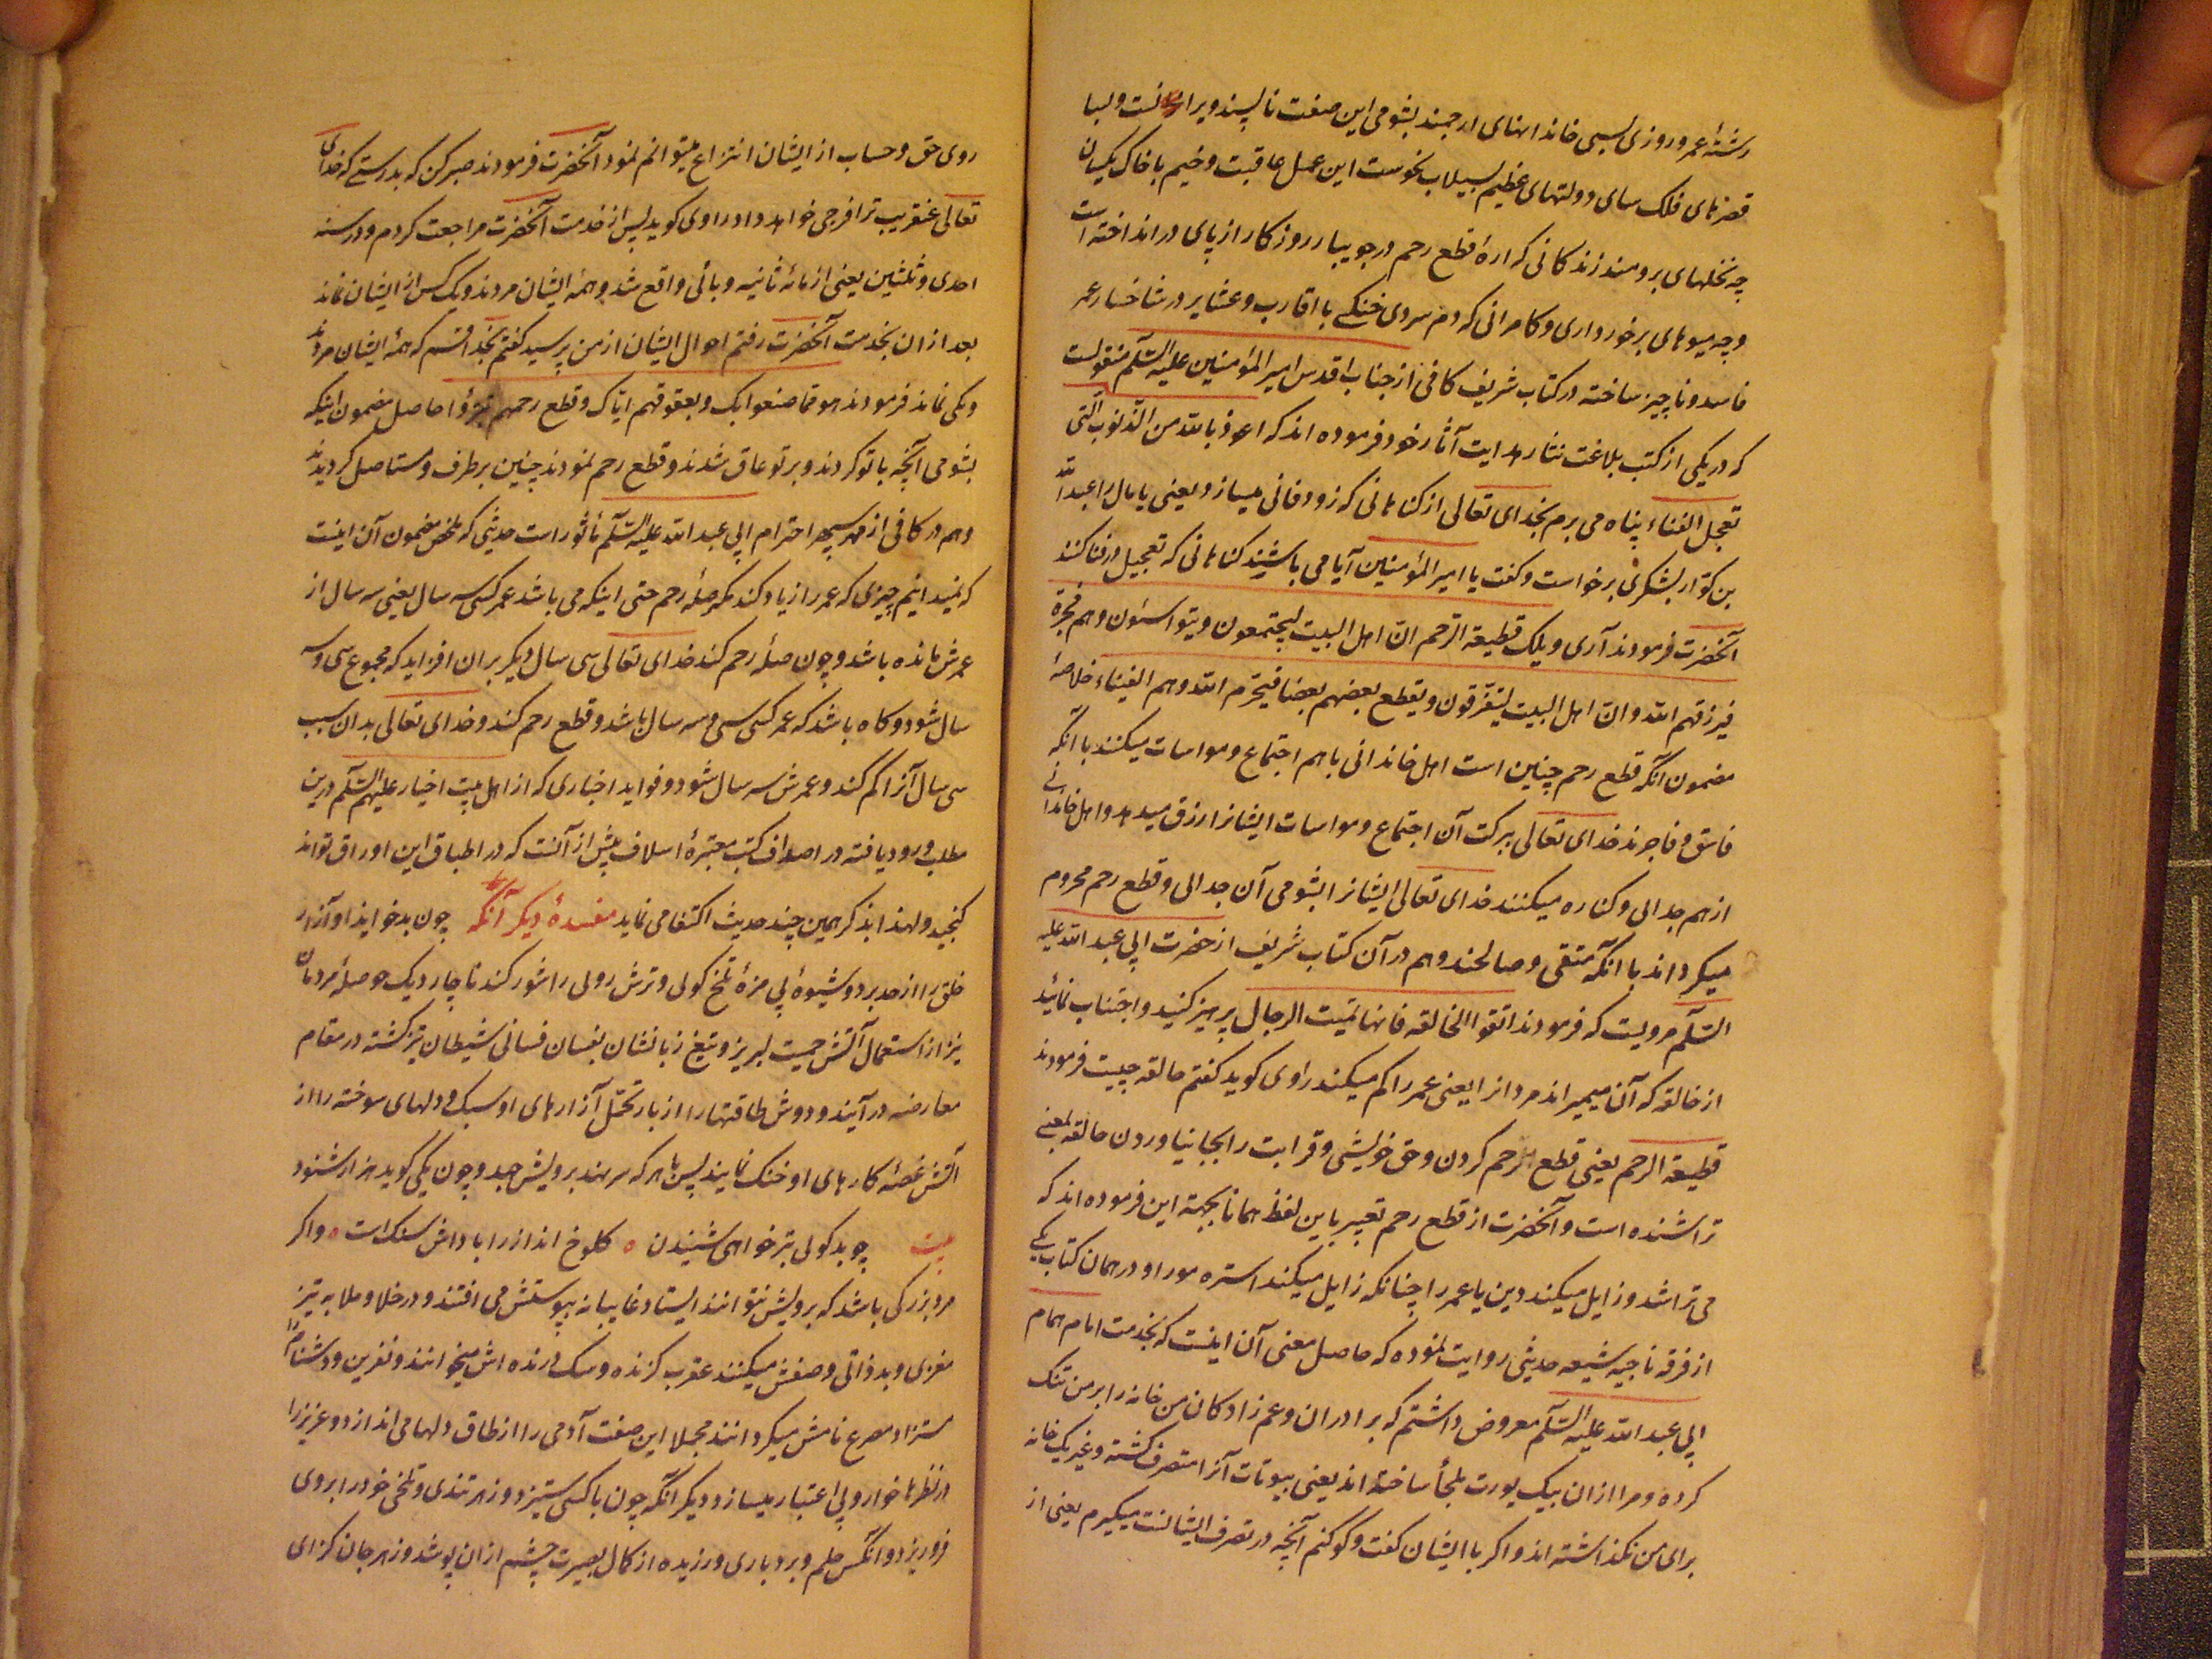 رشتهٔ عمر و روزی بسی خاندانهای ارجمند بشومی این صفت ناپسند ویرانست و بسا
قصرهای فلک سای دولتهای عظیم بسیلاب نحوست این عمل عاقبت وخیم با خاک یکسان
چه نخلهای برومند زندگانی که ارهٔ قطع رحم در جویبار روزگار از پای در انداخته است
و چه میوهای برخورداری و کامرانی که دم سردی خنکی با اقارب و عشایر در شاخسار عمر
فاسد و ناچیز ساخته در کتاب شریف کافی از جناب اقدس امیر المؤمنین علیه السّلام منقولست
که در یکی از کتب بلاغت نثار هدایت آثار خود فرموده اند که اعوذ بالله من الذّنوب الّتی
تعجل الفناء پناه می برم بخدای تعالی از کناهانی که زود فانی میسازد یعنی یا مال را عبد الله
بن کوّار یشکری برخواست و کفت یا امیر المؤمنین آیا می باشند کناهانی که تعجیل در فنا کنند
آنحضرت فرمودند آری ویلک قطیعة الرّحم انّ اهل البیت لیجتمعون و یتواسئون و هم فجرة
فیرزقهم الله و انّ اهل البیت لیتفرّقون و یقطع بعضهم بعضا فیحرم الله و هم القیاء خلاصهٔ
مضمون آنکه قطع رحم چنین است اهل خاندانی باهم اجتماع و مواسات میکنند با آنکه
فاسق و فاجرند خدای تعالی ببرکت آن اجتماع و مواسات ایشانرا رزق میدهد و اهل خاندانی
از هم جدائی و کناره میکنند خدای تعالی ایشانرا بشومی آن جدائی و قطع رحم محروم
میکرداند با آنکه متّقی و صالحند و هم در آن کتاب شریف از حضرت ابی عبد الله علیه
السّلام مرویست که فرمودند اتّقوا الحالقه فانها تمیت الرجال پرهیز کنید و اجتناب نمائید
از حالقه که آن میمیراند مردانرا یعنی عمر را کم میکند راوی کوید کفتم حالقه چیست فرمودند
قطیعة الرحم یعنی قطع رحم کردن و حق خویشی و قرابت را بجا نیاوردن حالقه بمعنی
تراشنده است و آنحضرت از قطع رحم تعبیر باین لفظ همانا بجهة این فرموده اند که
می تراشد و زایل میکند دین یا عمر را چنانکه زایل میکند استره مو را و در همان کتاب یکی
از فرقه ناجیه شیعه حدیثی روایت نموده که حاصل معنی آن اینست که بخدمت امام همام
ابی عبد الله علیه السّلام معروض داشتم که برادران و عم زادکان من خانه را بر من تنک
کرده و مرا از ان بیک یورت ملجأ ساخته اند یعنی بیوتات آنرا متصرف کشته و غیر یک خانه
برای من نکذاشته اند و اکر با ایشان کفت و کو کنم آنچه در تصرف ایشانست میکیرم یعنی از
روی حق و حساب از ایشان انتزاع میتوانم نمود آنحضرت فرمودند صبر کن که بدرستی که خدای
تعالی عنقریب ترا فرجی خواهد داد راوی کوید پس از خدمت آنحضرت مراجعت کردم و در سنه
احدی و ثلثین یعنی از مائه ثانیه وبائی واقع شد و همه ایشان مردند و یک کس از ایشان نماند
بعد ازان بخدمت آنحضرت رفتم احوال ایشان از من پرسید کفتم بخدا قسم که همهٔ ایشان مردند
و یکی نماند فرمودند هو ممّا صنعوا بک و بعقوقهم ایّاک و قطع رحمهم بتروا حاصل مضمون اینکه
بشومی آنچه با تو کردند و بر تو عاق شدند و قطع رحم نمودند چنین بر طرف و مستاصل کردیدند
و هم در کافی از مهر سپهر احترام ابی عبد الله علیه السّلام مأثور است حدیثی که ملخص مضمون آن اینست
که نمیدانیم چیزی که عمر را زیاد کند مکر صلهٔ رحم حتی اینکه می باشد عمر کسی سه سال یعنی سه سال از
عمرش مانده باشد و چون صلهٔ رحم کند خدای تعالی سی سال دیکر بران افزاید که مجموع سی و سه
سال شود و کاه باشد که عمر کسی سی و سه سال باشد و قطع رحم کند و خدای تعالی بدان سبب
سی سال آنرا کم کند و عمرش سه سال شود و فواید اخباری که از اهل بیت اخیار علیهم السّلام درین
مطلب ورود یافته در اصداف کتب معتبرهٔ اسلاف بیش از آنست که در اطباق این اوراق تواند
کنجید و لهذا بذکر همین چند حدیث اکتفا می نماید مفسدهٔ دیکر آنکه چون بدخو ایذا و آزار
خلق را از حد برد و شیوهٔ بی مزهٔ تلخ کوئی و ترش روئی را شور کند ناچار دیک حوصلهٔ مردمان
نیز از استعمال آتش حمیت لبریز و تیغ زبانشان بفسان فسانی شیطان تیز کشته در مقام
معارضه در آیند و دوش طاقتها را از بار تحمّل آزارهای او سبک و دلهای سوخته را از
آتش غصّهٔ کارهای او خنک نمایند پس با هر که سر نهد برویش جهد و چون یکی کوید هزار شنود
بیت چو بد کوئی بتر خواهی شنیدن ٥ کلوخ انداز را پاداش سنک است ٥ و اکر
مرد بزرکی باشد که برویش نتوانند ایستاد غایبانه بپوستش می افتند و در خلا و ملا به تیز
مغزی و بدذاتی وصفش میکنند عقرب کزنده و سک درنده اش میخوانند و نفرین و دشنام را
مستزاد مصرع نامش میکردانند مجملا این صفت آدمی را از طاق دلها می اندازد و عزیز را
در نظرها خوار و بی اعتبار میسازد و دیکر آنکه چون با کسی ستیزد و زهر تندی و تلخی خود را بروی
فرو ریزد و آنکس حلم و بردباری ورزیده از کمال بصیرت چشم ازان پوشد و زهر جان کزای